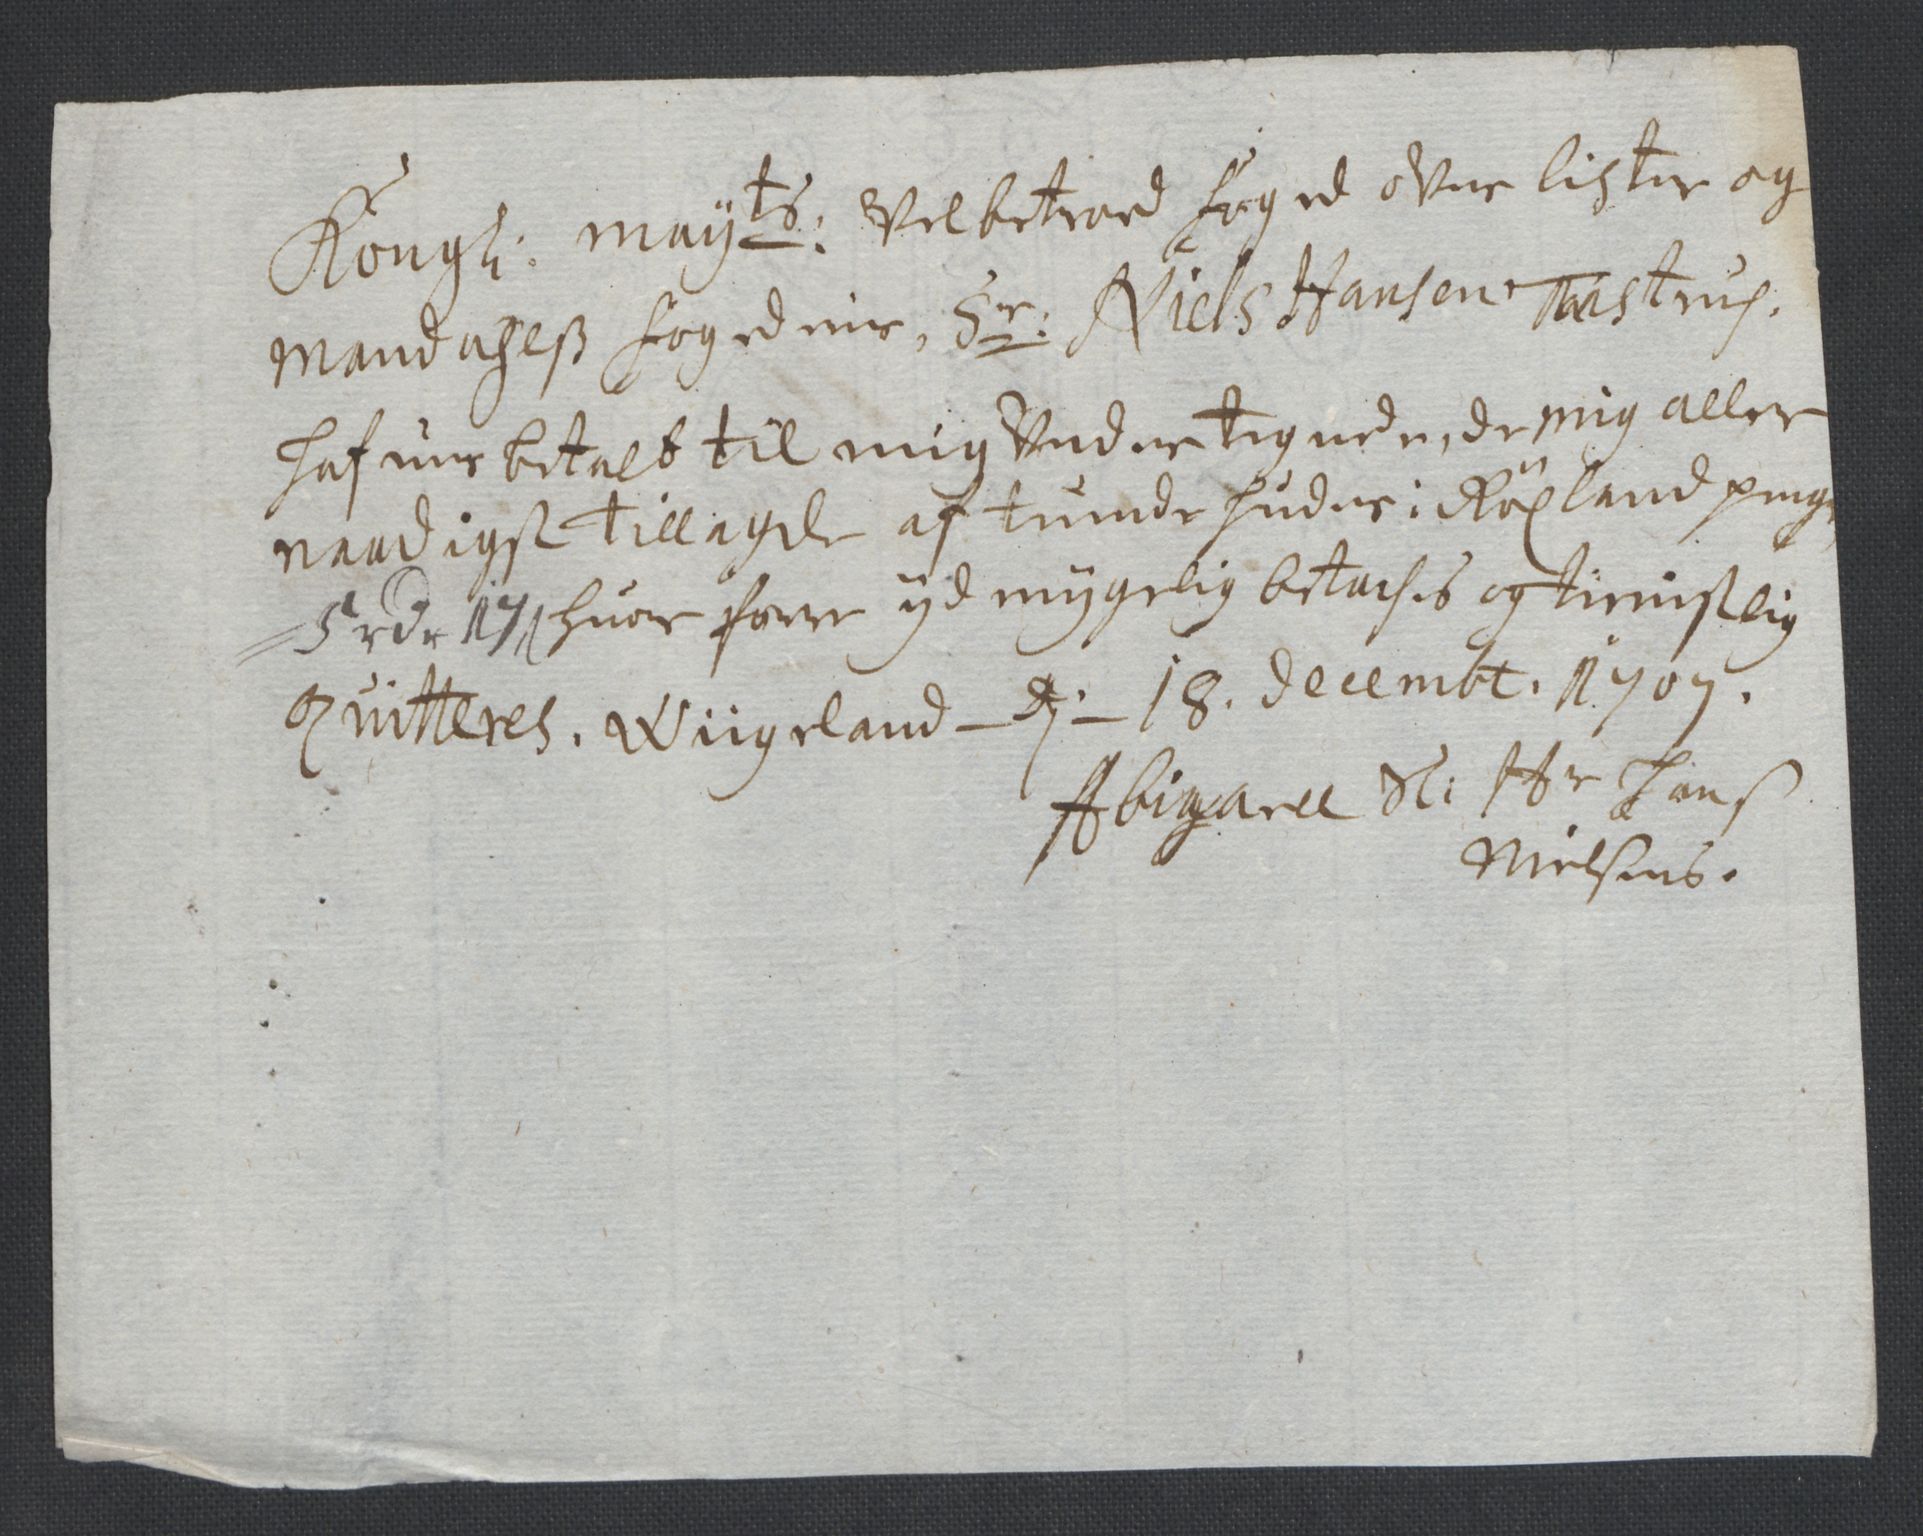 Kongl: mayts: Velbetroed foged ofver lister og
mandahlß fogederie, Sr: Niels Hansen Taastrup.
hafuer betalt til mig Vndertegnede, de mig aller
naadigst tillagde af tuinde huder i Röÿland penge
huor forre ÿdmÿgelig betackes og tienistlig
Qvitteres. Wiigeland – d: – 18. decembr. 1707.
Abigaell Sl: Hr Hans
Nielsens.